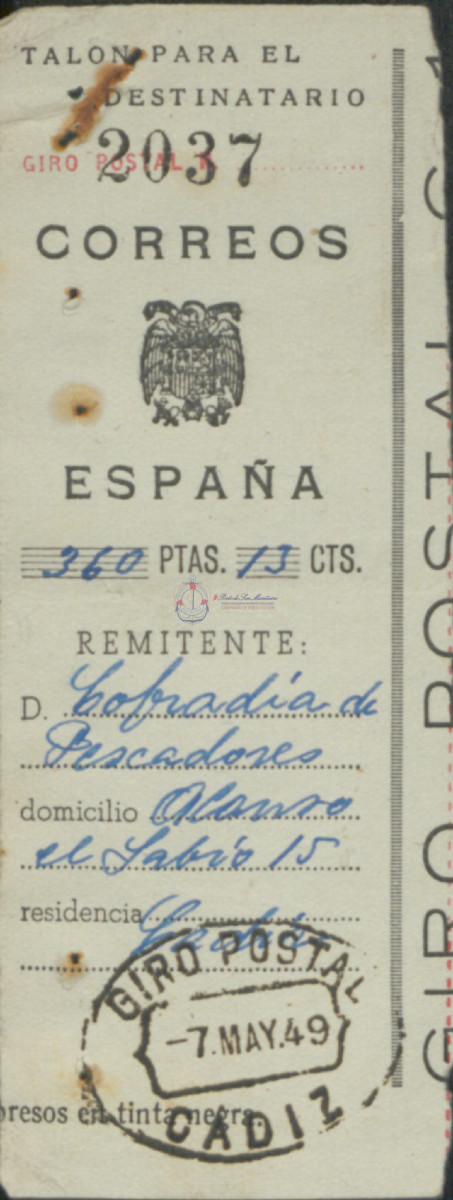 TALON PARA EL
DESTINATARIO
GIRO POSTAL N.
2037
CORREOS
ESPAÑA
360 PTAS. 13 CTS.
REMITENTE:
D. Cofradía de
Pescadores
domicilio Alonso
el Sabio 15
residencia Cadiz
GIRO POSTAL
-7.MAY.49
CADIZ
presos en tinta negra.
GIRO POSTAL